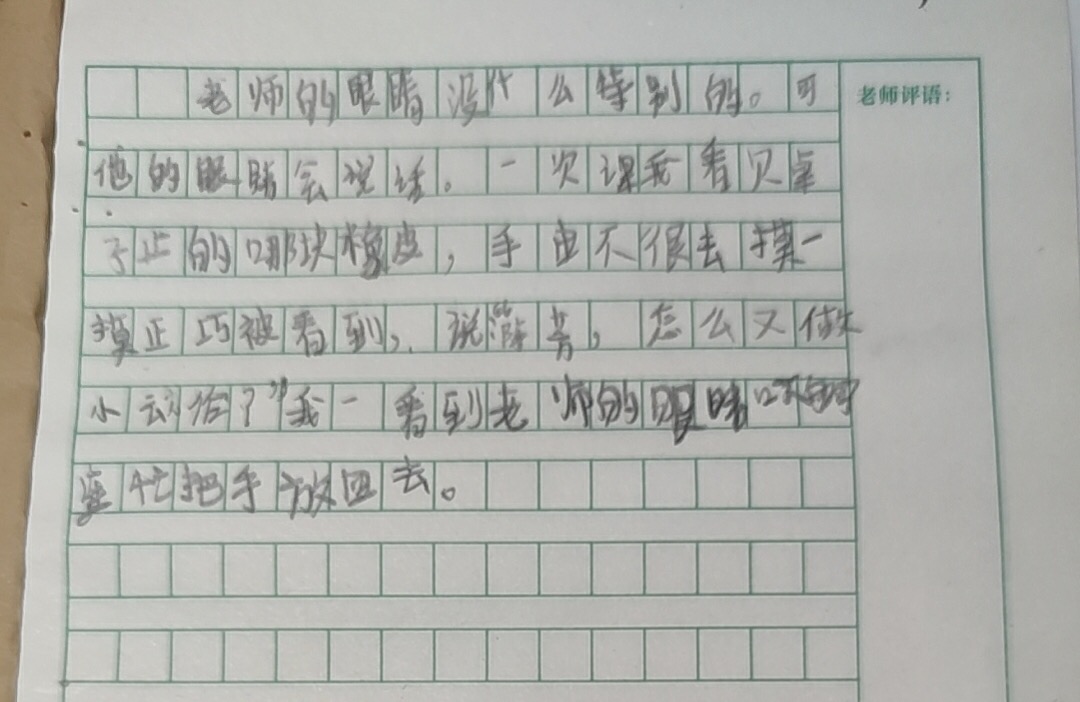 老师的眼睛没什么特别的。可
老师评语：
他的眼睛会说话。一次课我看见桌
子上的那块橡皮，手也不很去摸一
摸正巧被看到，说 芳，怎么又做
小动作了”我一看到老师的眼睛
连忙把手放回去。